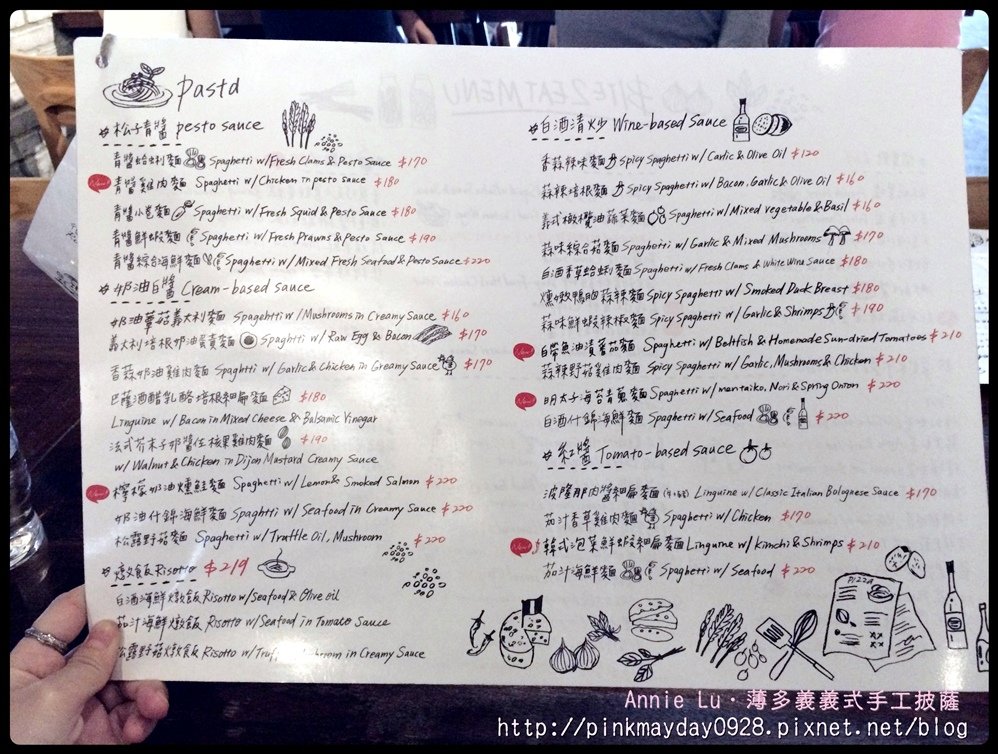 Pasta
#松子青醬 pesto sauce
青醬蛤蜊麵 Spaghetti w/Fresh Clams & Pesto Sauce $170
New! 青醬雞肉麵 Spaghetti w/Chicken in pesto sauce $180
青醬小卷麵 Spaghetti w/Fresh Squid & Pesto Sauce $180
青醬鮮蝦麵 Spaghetti w/Fresh Prawns & Pesto Sauce $190
青醬綜合海鮮麵 Spaghetti w/Mixed Fresh Seafood & Pesto Sauce $220
#奶油白醬 Cream-based sauce
奶油蘑菇義大利麵 Spagehtti w/Mushrooms in Creamy Sauce $160
義大利培根奶油蛋黃麵 Spaghtti w/Raw Egg & Bacon $170
香蒜奶油雞肉麵 Spaghtti w/Garlic & Chicken in Creamy Sauce $170
巴薩米醋乳酪培根細扁麵 $180
Linguine w/Bacon in Mixed Cheese & Balsamic Vinegar
法式芥末子奶醬佐核果雞肉麵 $190
w/Walnut & Chicken in Dijon Mustard Creamy Sauce
New! 檸檬奶油燻鮭麵 Spaghetti w/Lemon & Smoked Salmon $220
奶油什錦海鮮麵 Spaghtti w/Seafood in Creamy Sauce $220
松露野菇麵 Spaghetti w/Truffle Oil, Mushroom $220
#燉飯Risotto $219
白酒海鮮燉飯 Risotto w/Seafood & Olive oil
茄汁海鮮燉飯 Risotto w/Seafood in Tomato Sauce
松露野菇燉飯 Risotto w/Truffle Mushroom in Creamy Sauce
#白酒清炒 Wine-based Sauce
香蒜辣味麵 Spicy Spaghetti w/Garlic & Olive Oil $120
蒜辣培根麵 Spicy Spaghetti w/Bacon, Garlic & Olive Oil $160
義式橄欖油蔬菜麵 Spaghetti w/Mixed vegetable & Basil $160
蒜味綜合菇麵 Spaghetti w/Garlic & Mixed Mushrooms $170
白酒香草蛤蜊麵 Spaghetti w/Fresh Clams & White Wine Sauce $180
燻嫩鴨胸蒜辣麵 Spicy Spaghetti w/Smoked Duck Breast $180
蒜味鮮蝦辣椒麵 Spicy Spaghetti w/Garlic & Shrimps $190
New! 白帶魚油漬番茄麵 Spaghetti w/Beltfish & Homenade Sun-dried Tomatoes $210
蒜辣野菇雞肉麵 Spicy Spaghetti w/Garlic, Mushrooms & Chicken $210
New! 明太子海苔青蔥麵 Spaghetti w/mentaiko, Nori & Spring Onion $220
白酒什錦海鮮麵 Spaghetti w/Seafood $220
#紅醬 Tomato-based sauce
波隆那肉醬細扁麵 Linguine w/Classic Italian Bolognase Sauce $170
茄汁香草雞肉麵 Spaghetti w/Chicken $170
New! 韓式泡菜鮮蝦細扁麵 Linguine w/kimchi & Shrimps $210
茄汁海鮮麵 Spaghetti w/Seafood $220
PIZZA
Annie Lu·薄多義義式手工披薩
http://pinkmayday0928.pixnet.net/blog